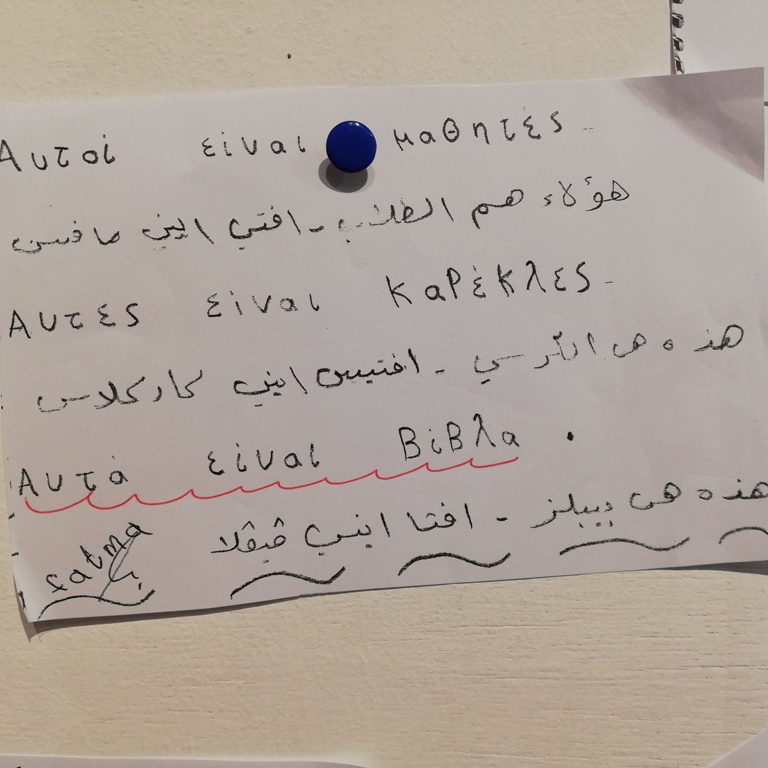 Αυτοί είναι μαθητές -
هؤلاء هم الطلاب - افتي ايني مافتس
Αυτες είναι καρέκλες -
هذه هي الكرسي - افتيس ايني كاركلاس
Αυτά είναι Βίβλα .
هذه هي بيبلز - افتا ايني ڤيڤلا
fatma